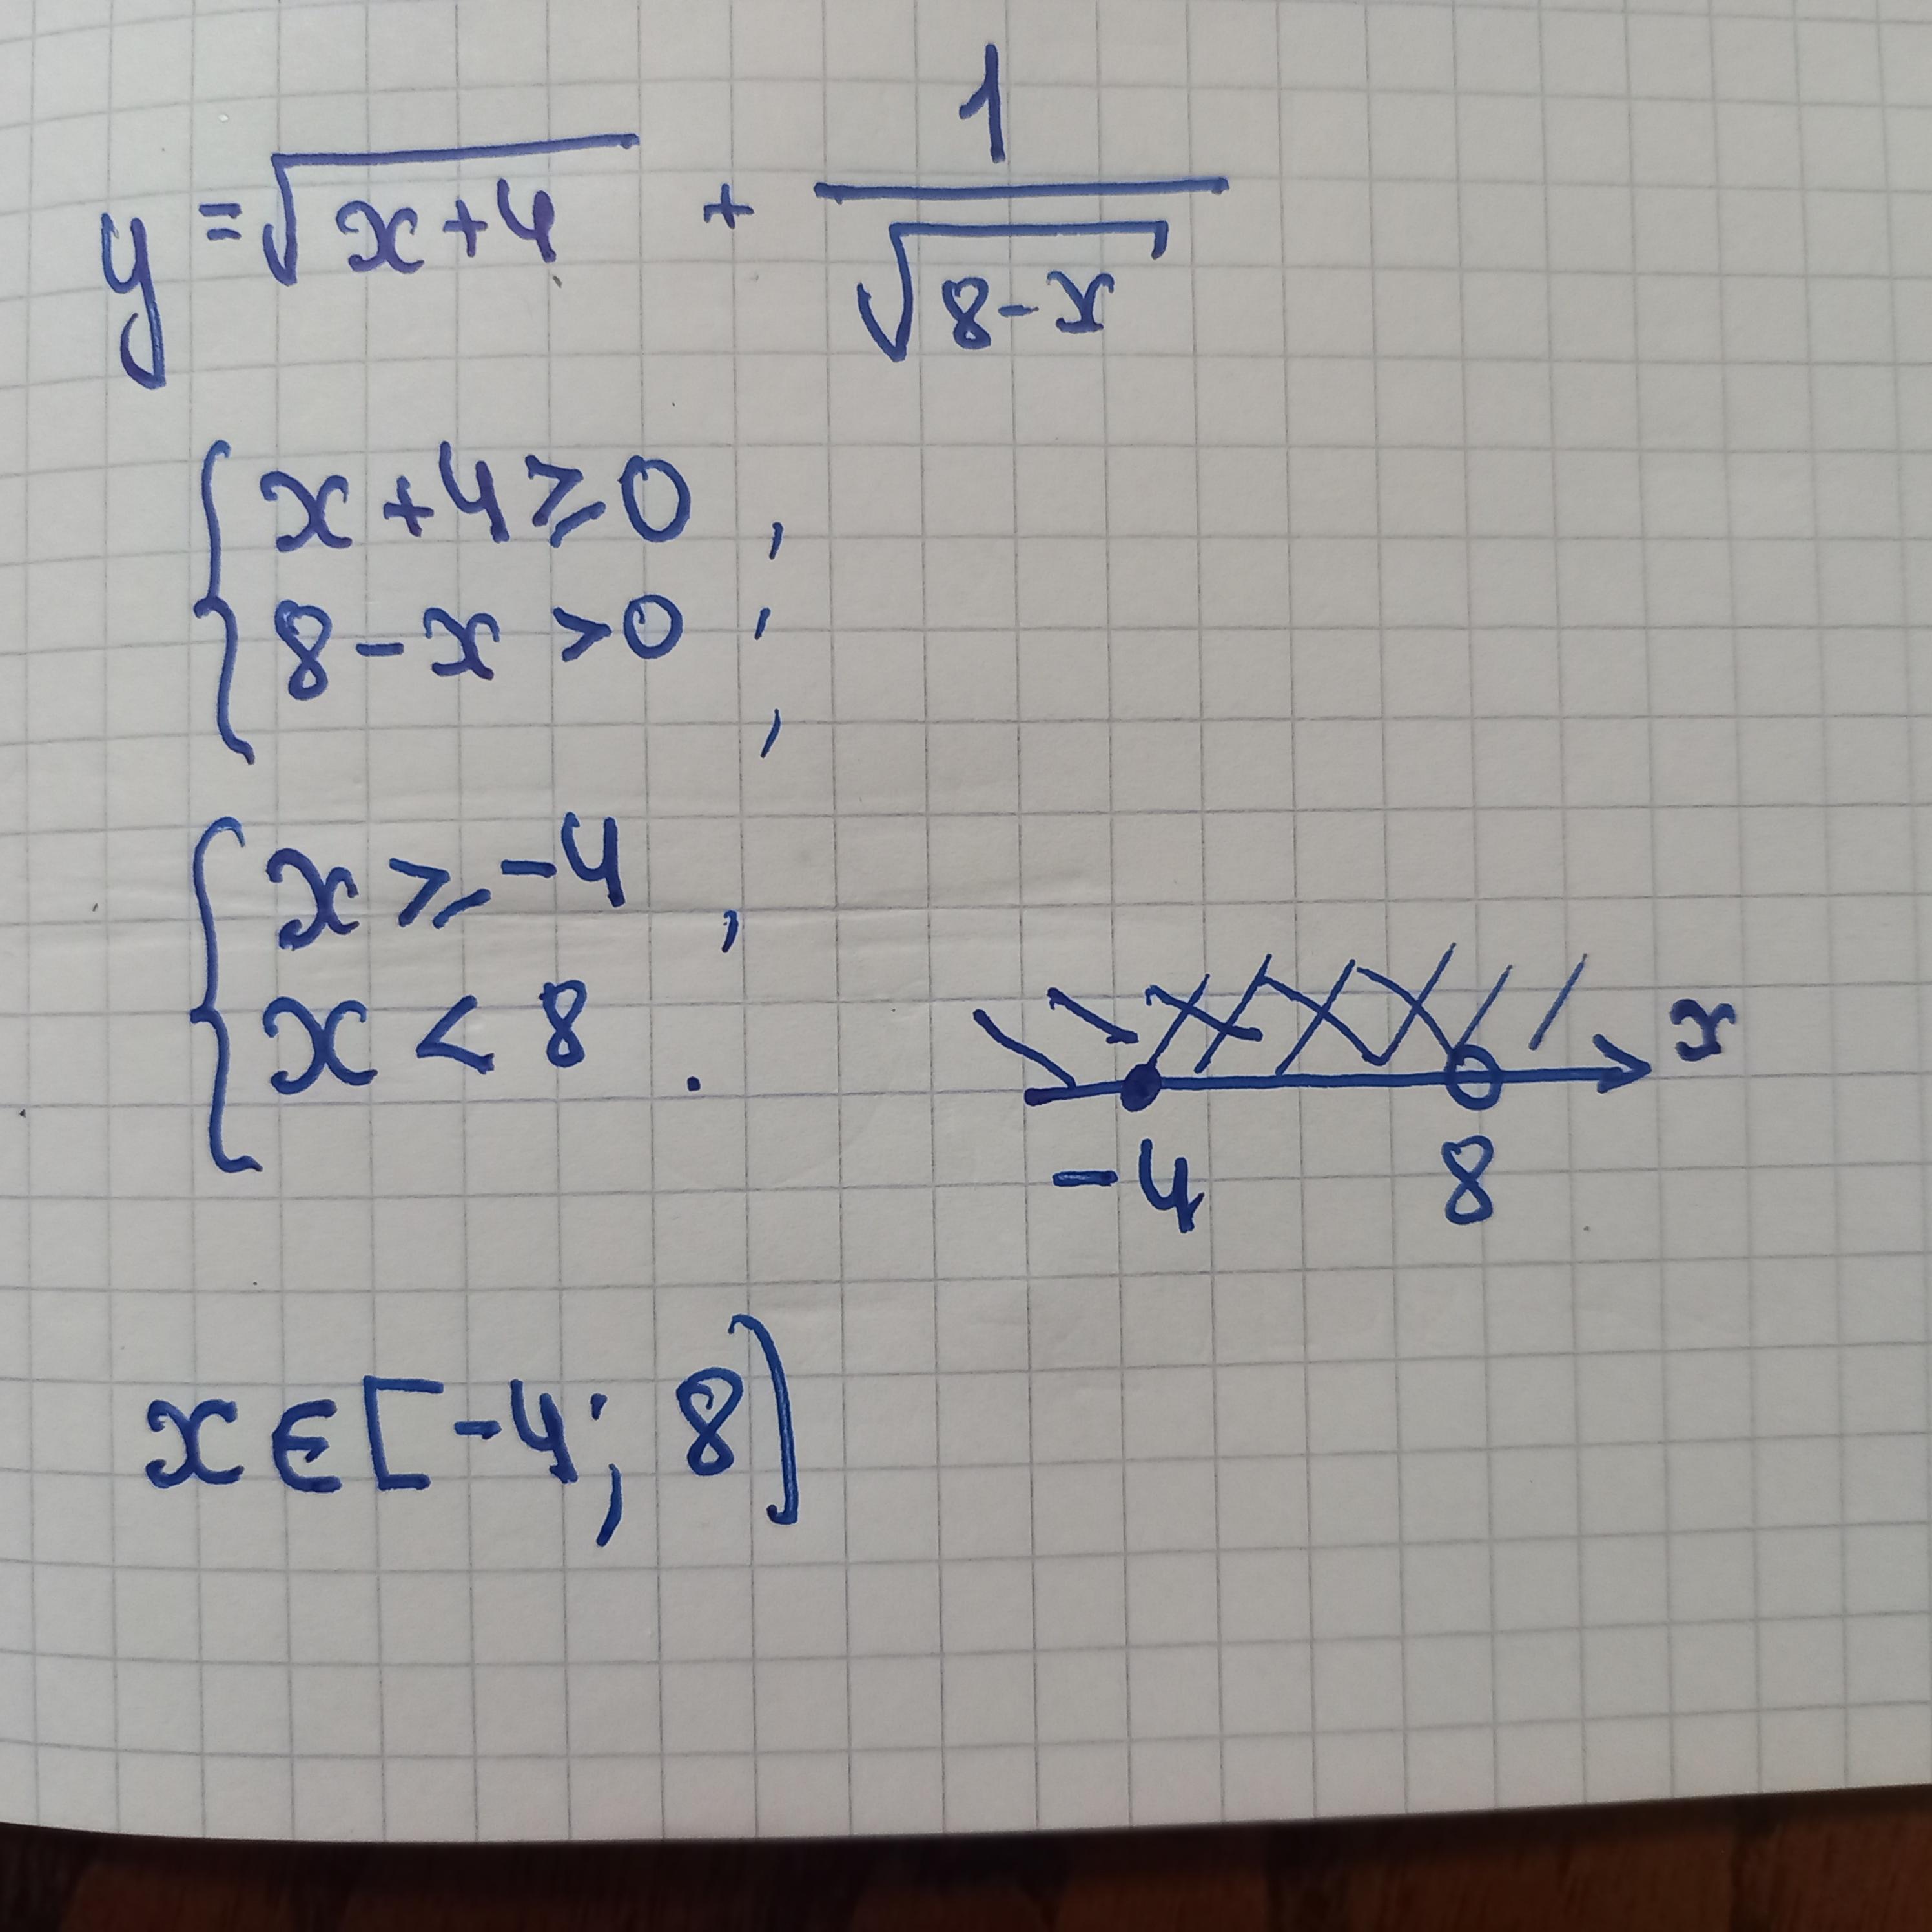 y = √(x+4) + 1/√(8-x)
{ x+4 ≥ 0 ,
8-x > 0 ;
,
{ x ≥ -4 ,
x < 8 .
x
-4 8
x ∈ [-4; 8)